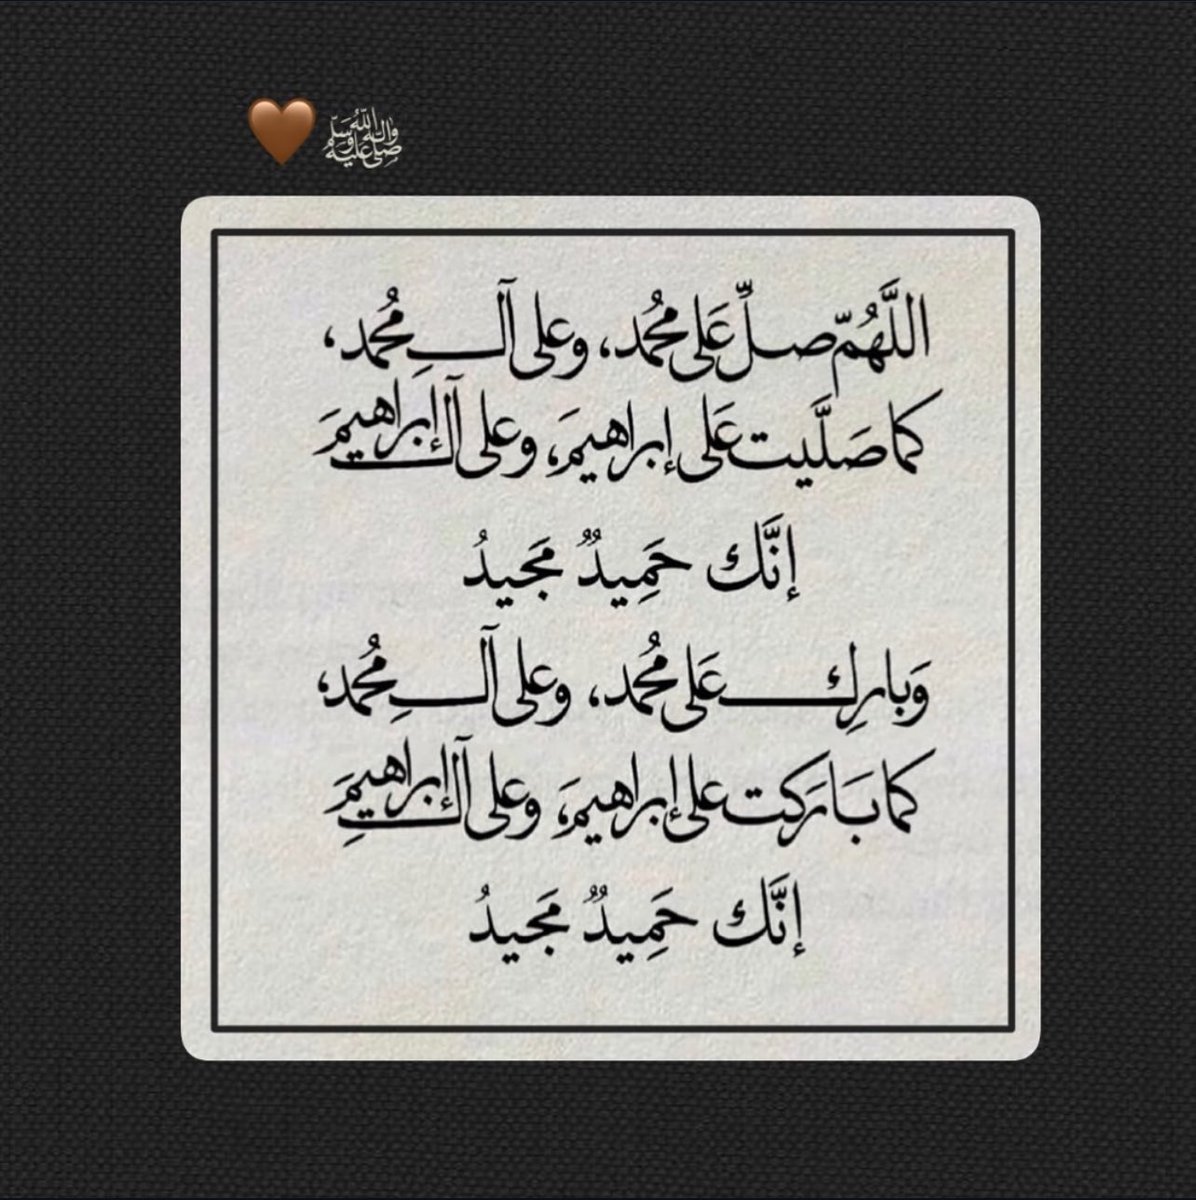 🤎 ﷺ
اللَّهُمّ صلِّ عَلى محُمد، وعلى آلِ محُمد،
كما صَلَّيت عَلى إبراهيمَ، وعلى آل إبراهيمَ
إنَّك حَمِيدٌ مَجيدُ
وَبارِك عَلى محُمد، وعلى آلِ محُمد،
كما بَارَكت على إبراهيمَ، وعلى آلِ إبراهيمَ
إنَّك حَمِيدٌ مَجيدُ